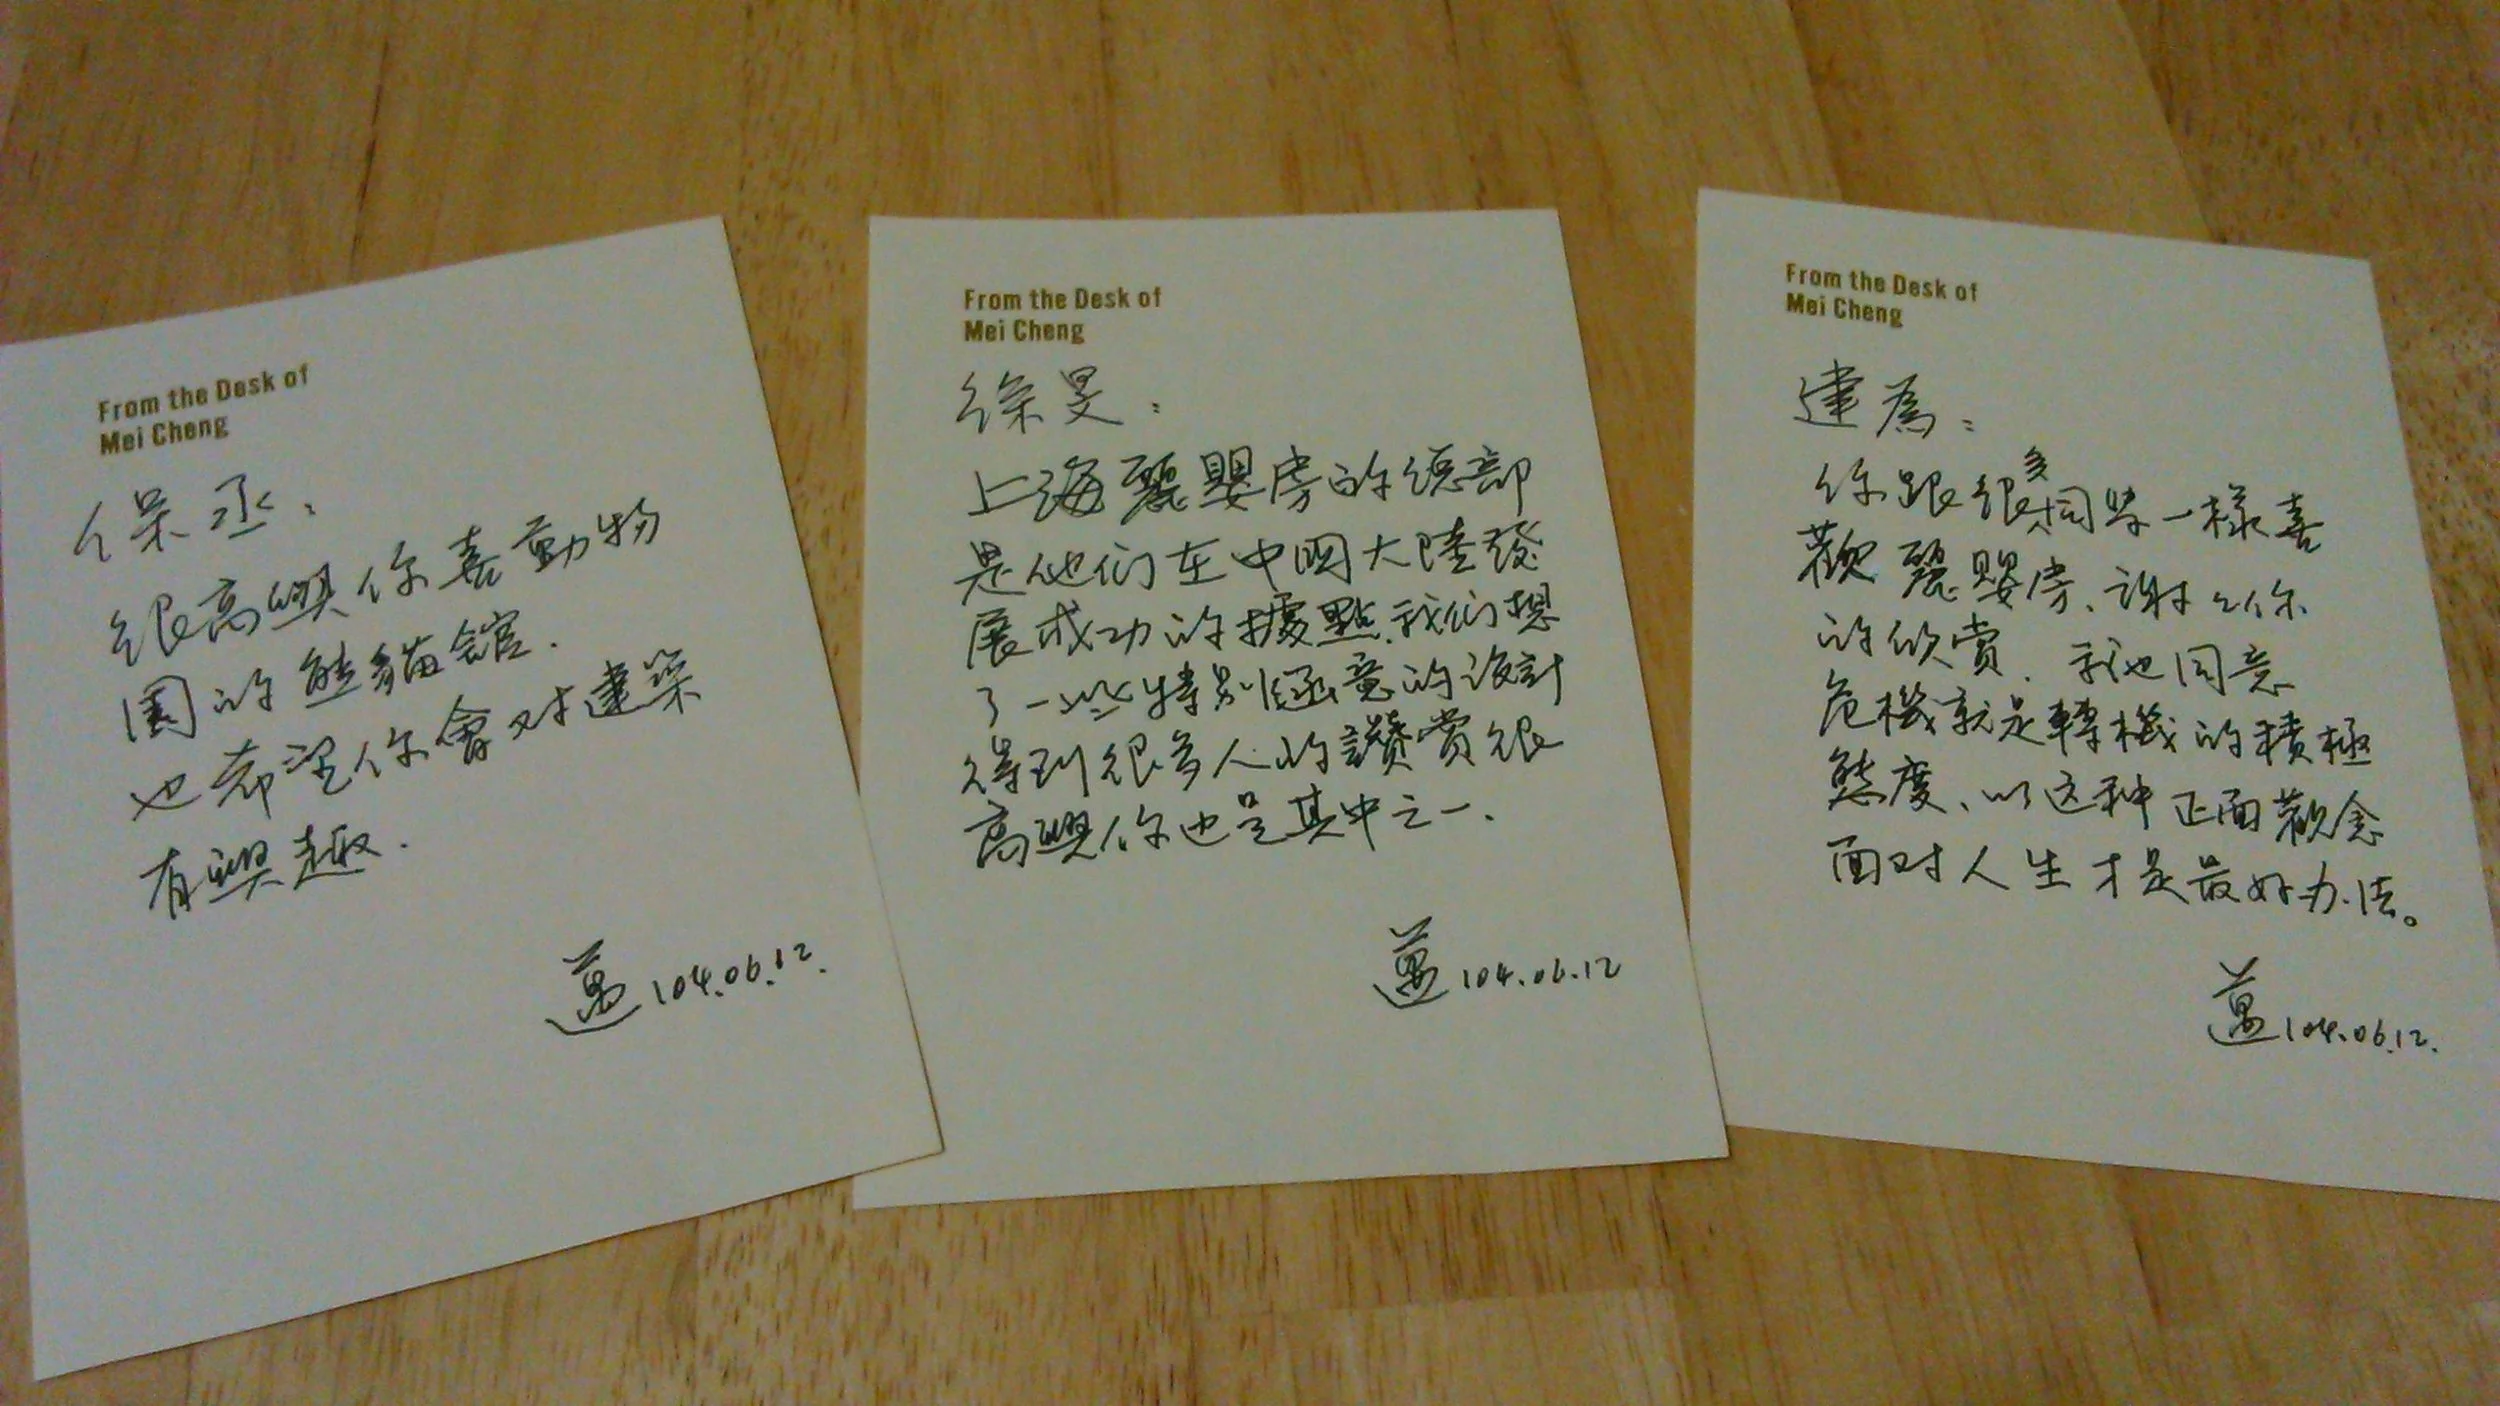 From the Desk of
Mei Cheng
保丞：
很高興你喜動物
園的熊貓館.
也希望你會对建築
有興趣.
邁 104.06.12.
From the Desk of
Mei Cheng
徐旻：
上海麗嬰房的總部
是他们在中國大陸發
展成功的據點.我们想
了一些特别涵意的设計
得到很多人的讚賞很
高興你也是其中之一.
邁 104.06.12
From the Desk of
Mei Cheng
建為：
你跟很多同学一樣喜
歡麗嬰房、謝々你
的欣賞. 我也同意
危機就是轉機的積極
態度、以这种正面觀念
面对人生才是最好办法。
邁 104.06.12.